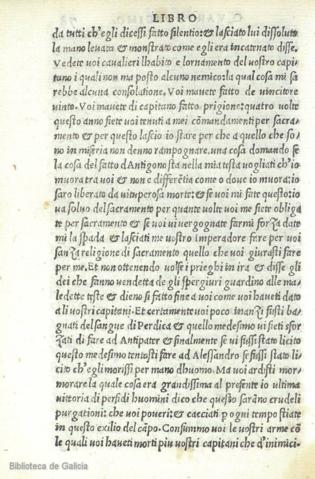 LIBRO
da tutti ch'egli dicessi fatto silentio: & lasciato lui dissoluto
la mano levata & monstrato come egli era incatenato disse.
Vedete voi cavalieri lhabito e lornamento del vostro capitu
no i quali non ma posto alcuno nemico: la qual cosa mi sa
rebbe alcuna consolatione. Voi mavete fatto de vincitore
vinto. Voi mavete di capitano fatto prigione: quatro volte
questo anno siete voi tenuti a mei cōmandamenti per sacra
mento & per questo lascio io stare per che a quello che so=
no in miseria non denno rampognare. una cosa domando se
la cosa dei fatto d'Antigono sta nella mia testa vogliati ch'io
muora tra voi & non e differētia come o dove io muora: io
saro liberato da vituperosa morte: & se voi mi fate questo: io
va solvo del sacramento per quante volte voi me siete obliga
te per sacramento & se voi vi vergognate farmi forza date
mi la spada & lasciati me vostro imperadore fare per voi
sanza religione di sacramento quello che voi giurasti fare
per me. Et non ottenendo volse i prieghi in ira & disse gli
dei che fanno vendetta de gli spergiuri guardino alle ma=
ledette teste & dieno si fatto fine a voi come voi haveti dato
a li vostri capitani. Et certamente voi poco inanzi fusti ba
gnati del sangue di Perdica & quello medesimo vi sieti sfor
zati di fare ad Antipater & finalmente se vi fussi stato licito
questo medesimo tentasti fare ad Alessandro se fussi stato li=
cito ch'egli morissi per mano dhuomo. Ma voi ardisti mor=
morare la quale cosa era grandissima al presente io ultima
vittoria di perfidi huomini dico che questo sarāno crudeli
purgationi: che voi poveri: & cacciati p ogni tempo stiate
in questo exilio del cāpo. Consummo voi le vostri arme cō=
le quali voi haveti morti piu vostri capitani che d'inimici.
Biblioteca de Galicia